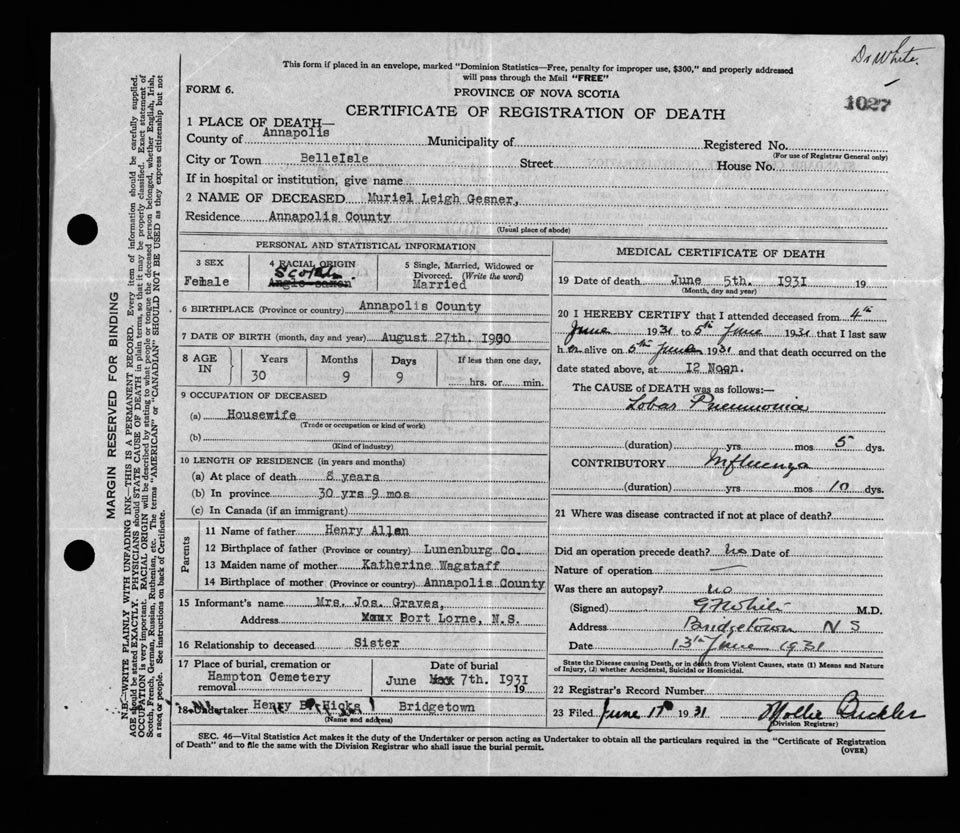 Dr White.
This form if placed in an envelope, marked "Dominion Statistics—Free, penalty for improper use, $300," and properly addressed
will pass through the Mail "FREE"
FORM 6.
PROVINCE OF NOVA SCOTIA
1027
CERTIFICATE OF REGISTRATION OF DEATH
1 PLACE OF DEATH—
County of Annapolis Municipality of Registered No.
(For use of Registrar General only)
City or Town BelleIsle Street House No.
If in hospital or institution, give name
2 NAME OF DECEASED Muriel Leigh Gesner,
Residence Annapolis County
(Usual place of abode)
PERSONAL AND STATISTICAL INFORMATION
3 SEX
Female
4 RACIAL ORIGIN
Scotch
Anglo-saxon
5 Single, Married, Widowed or
Divorced. (Write the word)
Married
6 BIRTHPLACE (Province or country) Annapolis County
7 DATE OF BIRTH (month, day and year) August 27th. 1900
8 AGE IN
Years Months Days If less than one day,
30 9 9 hrs. or min.
9 OCCUPATION OF DECEASED
(a) Housewife
(Trade or occupation or kind of work)
(b)
(Kind of industry)
10 LENGTH OF RESIDENCE (in years and months)
(a) At place of death 8 years
(b) In province 30 yrs 9 mos
(c) In Canada (if an immigrant)
Parents
11 Name of father Henry Allen
12 Birthplace of father (Province or country) Lunenburg Co.
13 Maiden name of mother Katherine Wagstaff
14 Birthplace of mother (Province or country) Annapolis County
15 Informant's name Mrs. Jos. Graves,
Address Port Lorne, N.S.
16 Relationship to deceased Sister
17 Place of burial, cremation or removal
Hampton Cemetery
Date of burial
June 7th. 1931
19
18 Undertaker Henry B. Hicks Bridgetown
(Name and address)
MEDICAL CERTIFICATE OF DEATH
19 Date of death June 5th. 1931 19
(Month, day and year)
20 I HEREBY CERTIFY that I attended deceased from 4th
June 1931 to 5th June 1931 that I last saw
her alive on 5th June 1931 and that death occurred on the
date stated above, at 12 Noon.
The CAUSE of DEATH was as follows:—
Lobar Pneumonia
(duration) yrs mos 5 dys.
CONTRIBUTORY Influenza
(duration) yrs mos 10 dys.
21 Where was disease contracted if not at place of death?
Did an operation precede death? no Date of
Nature of operation —
Was there an autopsy? no
(Signed) M.D.
Address Bridgetown N S
Date 13th June 1931
State the Disease causing Death, or in death from Violent Causes, state (1) Means and Nature
of Injury, (2) whether Accidental, Suicidal or Homicidal.
22 Registrar's Record Number
23 Filed June 17th 1931 Mollie Buckler
(Division Registrar)
SEC. 46—Vital Statistics Act makes it the duty of the Undertaker or person acting as Undertaker to obtain all the particulars required in the "Certificate of Registration
of Death" and to file the same with the Division Registrar who shall issue the burial permit. (OVER)
MARGIN RESERVED FOR BINDING
N.B.—WRITE PLAINLY WITH UNFADING INK—THIS IS A PERMANENT RECORD. Every item of information should be carefully supplied.
AGE should be stated EXACTLY. PHYSICIANS should STATE CAUSE OF DEATH in plain terms, so that it may be properly classified. Exact statement of
OCCUPATION is very important. RACIAL ORIGIN will be described by stating to what people or tongue the deceased person belonged, whether English, Irish,
Scotch, French, German, Russian, Ruthenian, etc. The terms "AMERICAN" or "CANADIAN" SHOULD NOT BE USED as they express citizenship but not
a race or people. See instructions on back of Certificate.